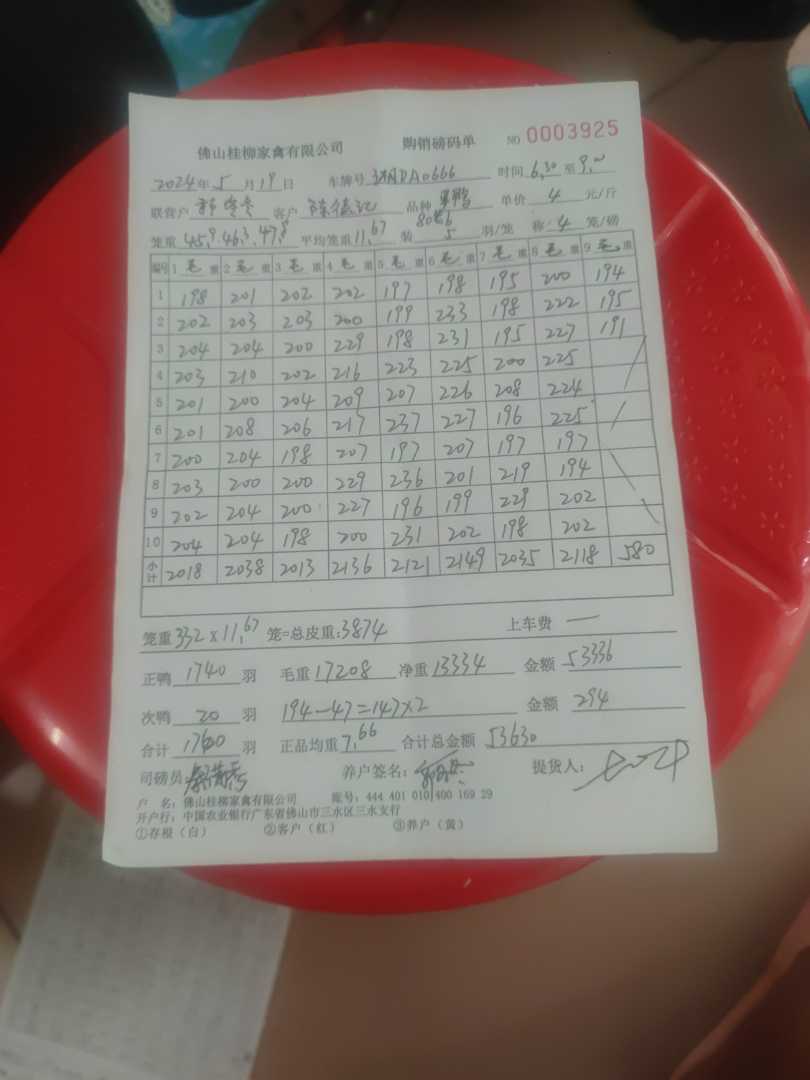 佛山桂柳家禽有限公司 购销磅码单 NO 0003925
2024年5月19日 车牌号 DA0666 时间6,30至9,
联营户 客户 陈德记 品种 单价 4 元/斤
笼重45,9 46,3 47,8 平均笼重11,67 装 5 羽/笼 称 4 笼/磅
编号 1 毛 重 2 毛 重 3 毛 重 4 毛 重 5 毛 重 6 毛 重 7 毛 重 8 毛 重 9 毛 重
1 198 201 202 202 197 198 195 200 194
2 202 203 203 200 199 233 198 222 195
3 204 204 200 229 198 231 195 227 191
4 203 210 202 216 223 225 200 225
5 201 200 204 209 207 226 208 224
6 201 208 206 217 237 227 196 225
7 200 204 198 207 197 207 197 197
8 203 200 200 229 236 201 219 194
9 202 204 200 227 196 199 229 202
10 204 204 198 200 231 202 198 202
小计 2018 2038 2013 2136 2121 2149 2035 2118 580
笼重332×11,67 笼=总皮重:3874 上车费 一
正鸭 1740 羽 毛重17208 净重13334 金额 53336
次鸭 20 羽 194-47=147×2 金额 294
合计 1760 羽 正品均重7,66 合计总金额 53630
司磅员 养户签名: 提货人:
户 名:佛山桂柳家禽有限公司 账号:444 401 010 400 169 29
开户行:中国农业银行广东省佛山市三水区三水支行
①存根(白) ②客户(红) ③养户(黄)